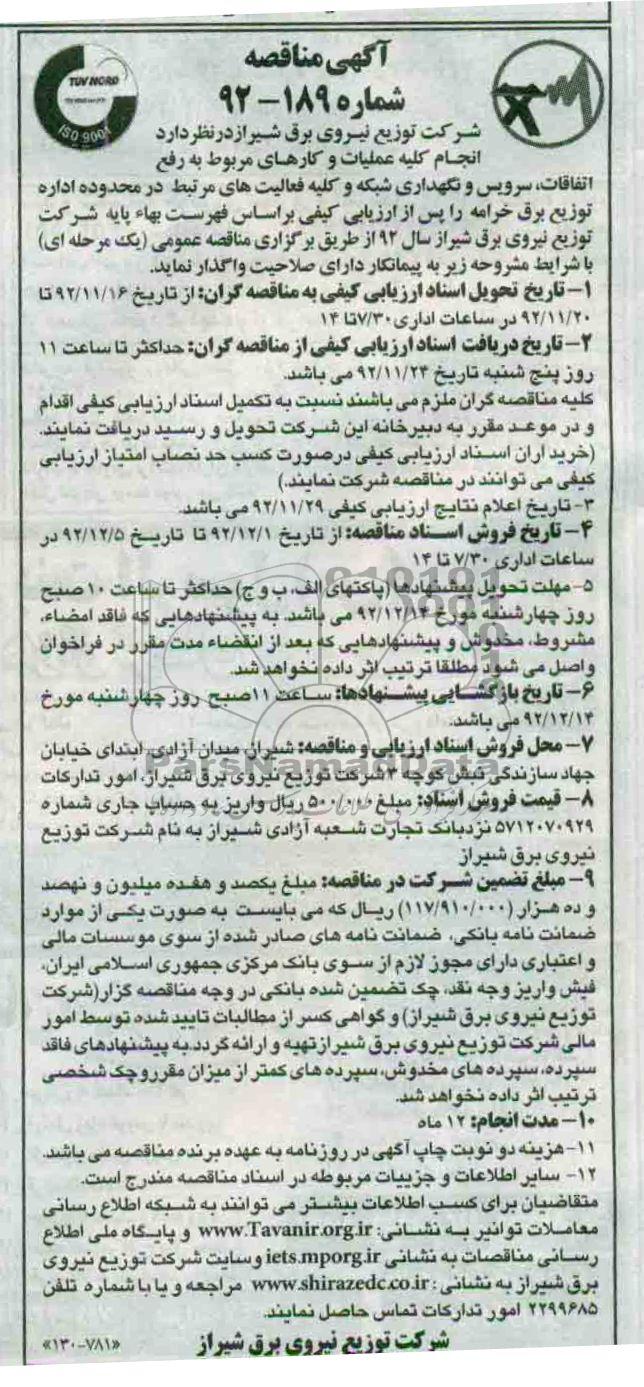 آگهی مناقصه
شماره ۱۸۹-۹۲
TUV NORD
ISO 9001
شرکت توزیع نیروی برق شیراز در نظر دارد
انجام کلیه عملیات و کارهای مربوط به رفع
اتفاقات، سرویس و نگهداری شبکه و کلیه فعالیت های مرتبط در محدوده اداره
توزیع برق خرامه را پس از ارزیابی کیفی بر اساس فهرست بهاء پایه شرکت
توزیع نیروی برق شیراز سال ۹۲ از طریق برگزاری مناقصه عمومی (یک مرحله ای)
با شرایط مشروحه زیر به پیمانکار دارای صلاحیت واگذار نماید.
۱- تاریخ تحویل اسناد ارزیابی کیفی به مناقصه گران: از تاریخ ۹۲/۱۱/۱۶ تا
۹۲/۱۱/۲۰ در ساعات اداری ۷/۳۰ تا ۱۴
۲- تاریخ دریافت اسناد ارزیابی کیفی از مناقصه گران: حداکثر تا ساعت ۱۱
روز پنج شنبه تاریخ ۹۲/۱۱/۲۴ می باشد.
کلیه مناقصه گران ملزم می باشند نسبت به تکمیل اسناد ارزیابی کیفی اقدام
و در موعد مقرر به دبیرخانه این شرکت تحویل و رسید دریافت نمایند.
(خریداران اسناد ارزیابی کیفی درصورت کسب حد نصاب امتیاز ارزیابی
کیفی می توانند در مناقصه شرکت نمایند.)
۳- تاریخ اعلام نتایج ارزیابی کیفی ۹۲/۱۱/۲۹ می باشد.
۴- تاریخ فروش اسناد مناقصه: از تاریخ ۹۲/۱۲/۱ تا تاریخ ۹۲/۱۲/۵ در
ساعات اداری ۷/۳۰ تا ۱۴
۵- مهلت تحویل پیشنهادها (پاکتهای الف، ب و ج) حداکثر تا ساعت ۱۰ صبح
روز چهارشنبه مورخ ۹۲/۱۲/۱۴ می باشد. به پیشنهادهایی که فاقد امضاء،
مشروط، مخدوش و پیشنهادهایی که بعد از انقضاء مدت مقرر در فراخوان
واصل می شود مطلقا ترتیب اثر داده نخواهد شد.
۶- تاریخ بازگشایی پیشنهادها: ساعت ۱۱ صبح روز چهارشنبه مورخ
۹۲/۱۲/۱۴ می باشد.
۷- محل فروش اسناد ارزیابی و مناقصه: شیراز، میدان آزادی، ابتدای خیابان
ParsNamadData
جهاد سازندگی نبش کوچه ۳ شرکت توزیع نیروی برق شیراز، امور تدارکات
۸- قیمت فروش اسناد: مبلغ ۵۰۰/۰۰۰ ریال واریز به حساب جاری شماره
۵۷۱۲۰۷۰۹۲۹ نزد بانک تجارت شعبه آزادی شیراز به نام شرکت توزیع
نیروی برق شیراز
۹- مبلغ تضمین شرکت در مناقصه: مبلغ یکصد و هفده میلیون و نهصد
و ده هزار (۱۱۷/۹۱۰/۰۰۰) ریال که می بایست به صورت یکی از موارد
ضمانت نامه بانکی، ضمانت نامه های صادر شده از سوی موسسات مالی
و اعتباری دارای مجوز لازم از سوی بانک مرکزی جمهوری اسلامی ایران،
فیش واریز وجه نقد، چک تضمین شده بانکی در وجه مناقصه گزار (شرکت
توزیع نیروی برق شیراز) و گواهی کسر از مطالبات تایید شده توسط امور
مالی شرکت توزیع نیروی برق شیراز تهیه و ارائه گردد. به پیشنهادهای فاقد
سپرده، سپرده های مخدوش، سپرده های کمتر از میزان مقرر و چک شخصی
ترتیب اثر داده نخواهد شد.
۱۰- مدت انجام: ۱۲ ماه
۱۱- هزینه دو نوبت چاپ آگهی در روزنامه به عهده برنده مناقصه می باشد.
۱۲- سایر اطلاعات و جزییات مربوطه در اسناد مناقصه مندرج است.
متقاضیان برای کسب اطلاعات بیشتر می توانند به شبکه اطلاع رسانی
معاملات توانیر به نشانی: www.Tavanir.org.ir و پایگاه ملی اطلاع
رسانی مناقصات به نشانی iets.mporg.ir و سایت شرکت توزیع نیروی
برق شیراز به نشانی: www.shirazedc.co.ir مراجعه و یا با شماره تلفن
۲۲۹۹۶۸۵ امور تدارکات تماس حاصل نمایند.
شرکت توزیع نیروی برق شیراز
«۱۳۰-۷۸۱»